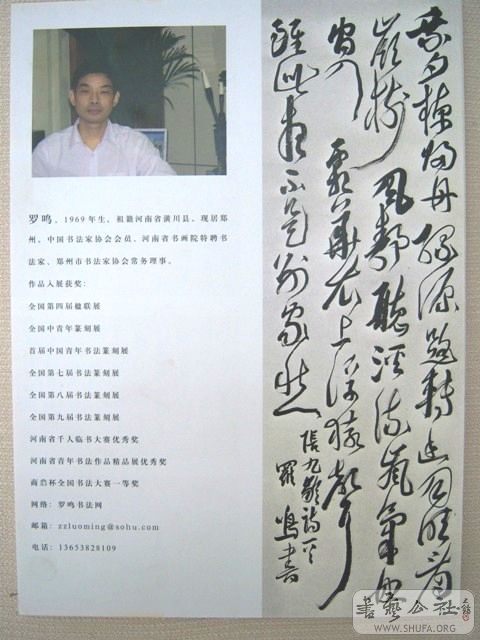 罗鸣，1969年生，祖籍河南省潢川县，现居郑
州，中国书法家协会会员，河南省书画院特聘书
法家、郑州市书法家协会常务理事。
作品入展获奖：
全国第四届楹联展
全国中青年篆刻展
首届中国青年书法篆刻展
全国第七届书法篆刻展
全国第八届书法篆刻展
全国第九届书法篆刻展
河南省千人临书大赛优秀奖
河南省青年书法作品精品展优秀奖
商鼎杯全国书法大赛一等奖
网络：罗鸣书法网
邮箱：zzluoming@sohu.com
电话：13653828109
乘夕棹歸舟緣源路轉幽月明看
嶺樹風靜聽溪流嵐氣船
間入霜華衣上浮猿聲
雖此夜不是別家愁
張九齡詩一
羅鳴書
書藝公社
WWW.SHUFA.ORG